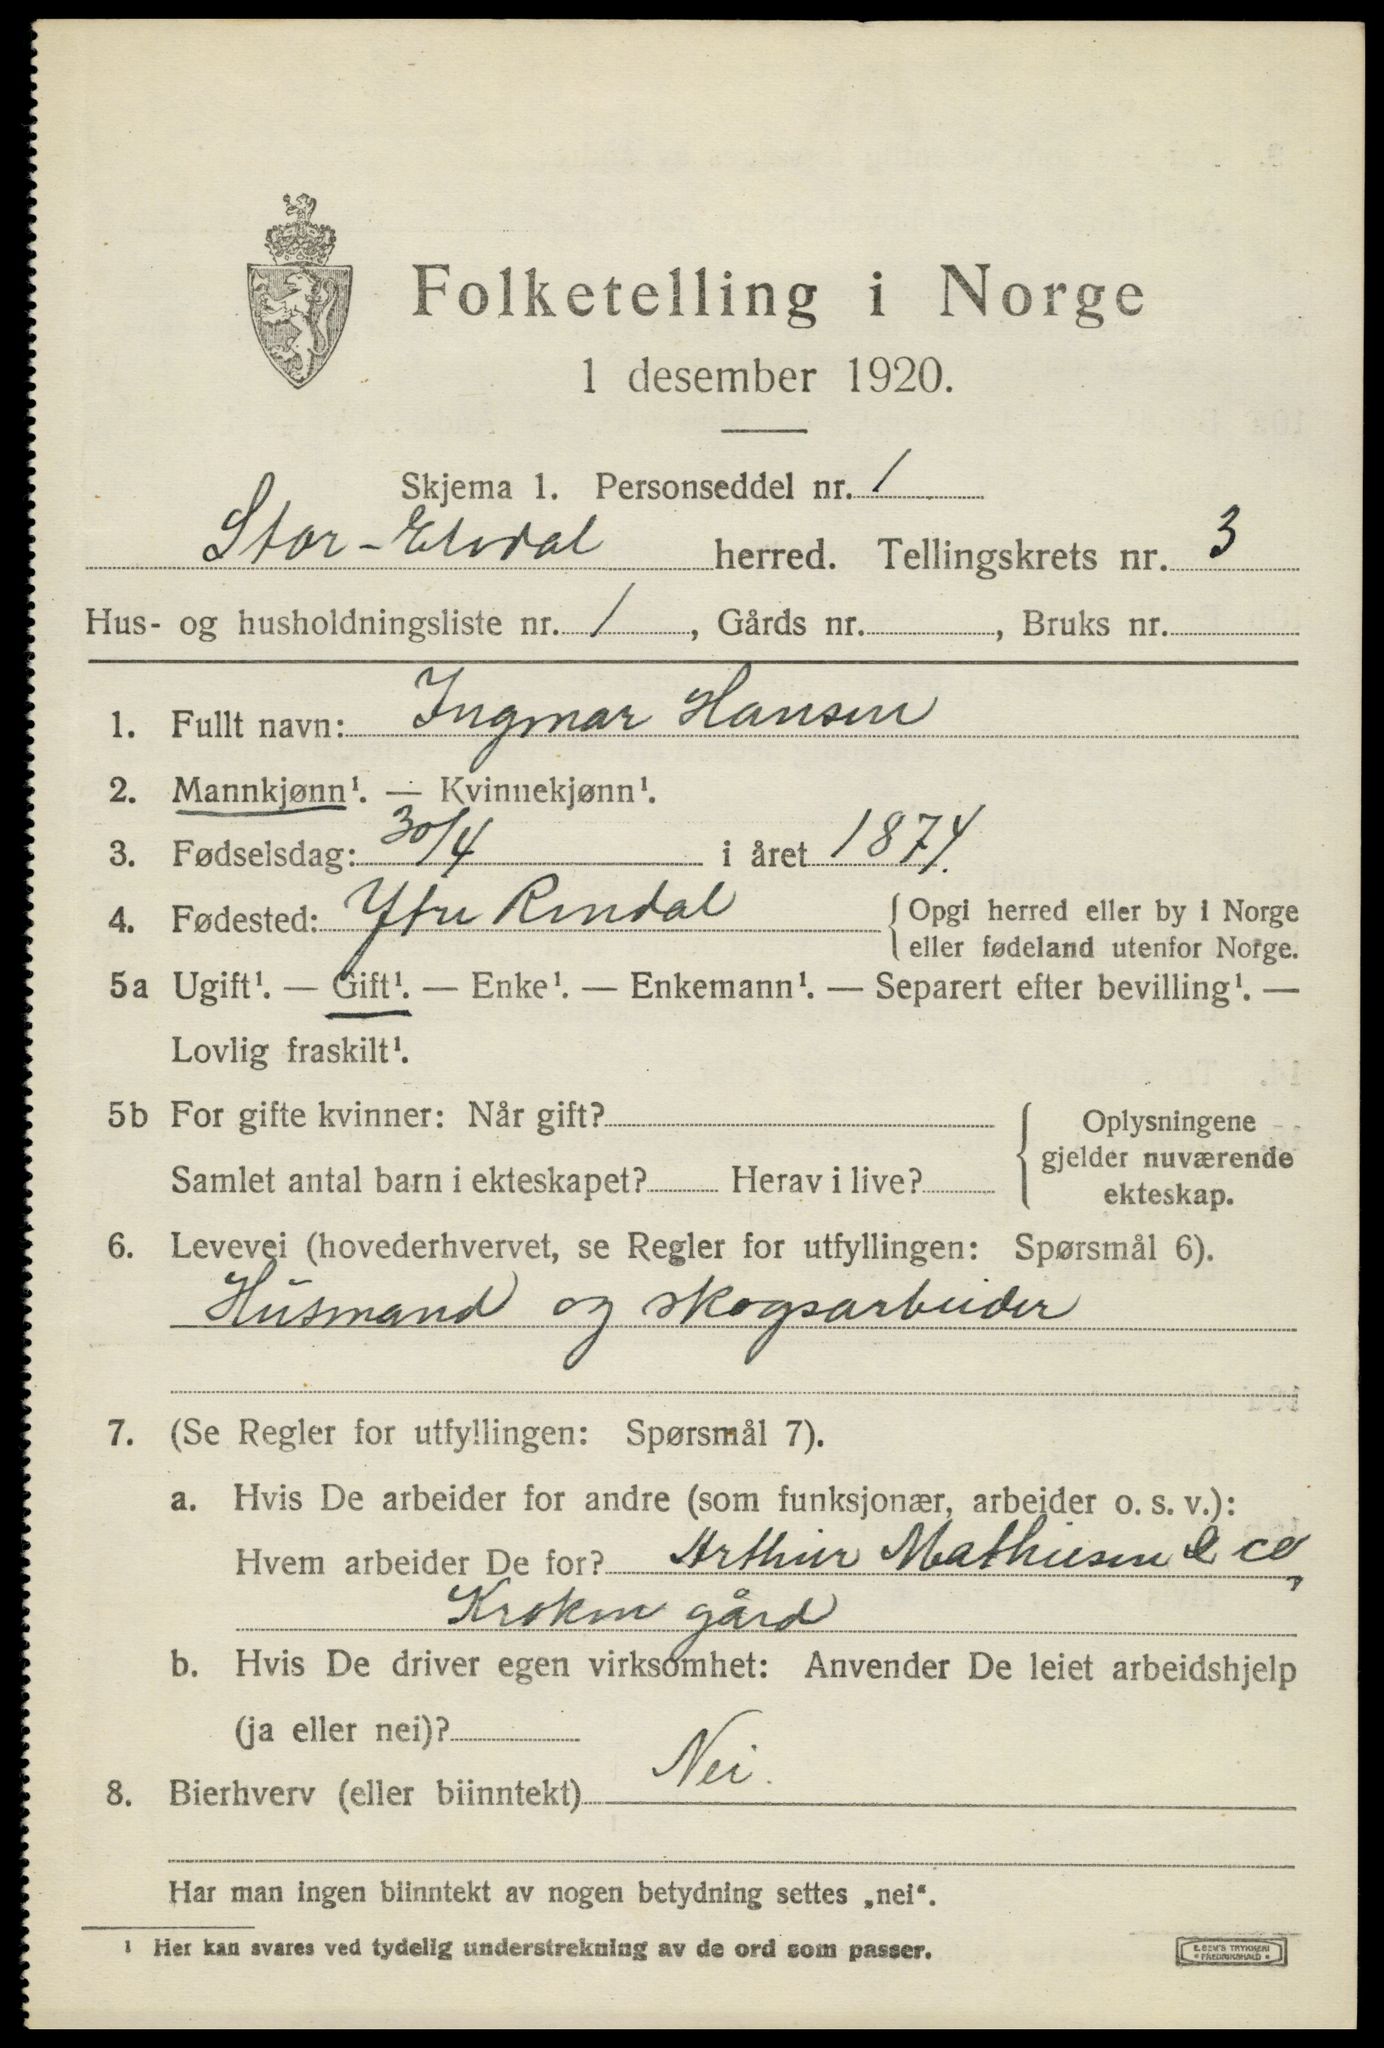 Folketelling i Norge
1 desember 1920.
Skjema 1. Personseddel nr. 1
Stor-Elvdal herred. Tellingskrets nr. 3
Hus- og husholdningsliste nr. 1, Gårds nr. , Bruks nr.
1. Fullt navn: Ingmar Hansen
2. Mannkjønn¹. — Kvinnekjønn¹.
3. Fødselsdag: 30/4 i året 1874.
4. Fødested: Ytre Rendal {Opgi herred eller by i Norge
eller fødeland utenfor Norge.
5a Ugift¹. — Gift¹. — Enke¹. — Enkemann¹. — Separert efter bevilling¹. —
Lovlig fraskilt¹.
5b For gifte kvinner: Når gift? { Oplysningene
gjelder nuværende
Samlet antal barn i ekteskapet? Herav i live? ekteskap.
6. Levevei (hovederhvervet, se Regler for utfyllingen: Spørsmål 6).
Husmand og skogsarbeider
7. (Se Regler for utfyllingen: Spørsmål 7).
a. Hvis De arbeider for andre (som funksjonær, arbeider o. s. v.):
Hvem arbeider De for? Arthur Mathiesen & co,
Kroken gård
b. Hvis De driver egen virksomhet: Anvender De leiet arbeidshjelp
(ja eller nei)?
8. Bierhverv (eller biinntekt) Nei.
Har man ingen biinntekt av nogen betydning settes „nei“.
¹ Her kan svares ved tydelig understrekning av de ord som passer.
E. SEM'S TRYKKERI
• FREDRIKSHALD •